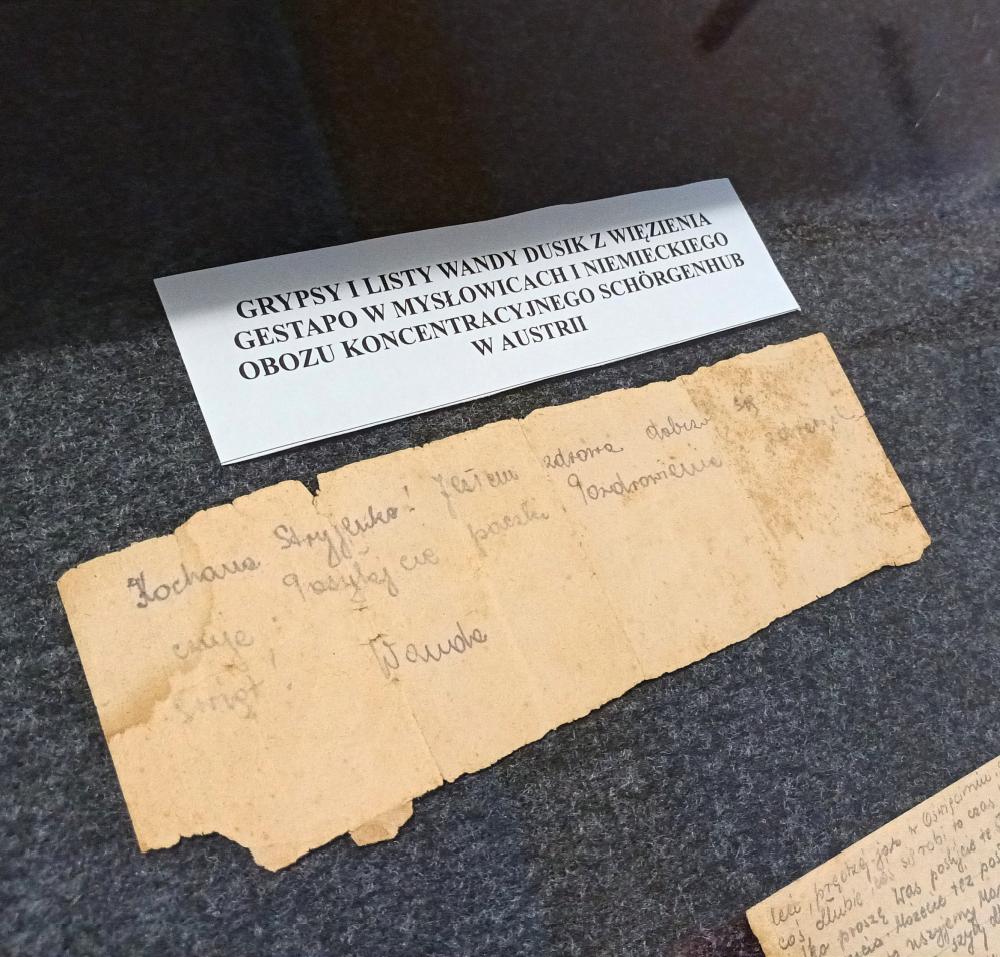 GRYPSY I LISTY WANDY DUSIK Z WIĘZIENIA
GESTAPO W MYSŁOWICACH I NIEMIECKIEGO
OBOZU KONCENTRACYJNEGO SCHÖRGENHUB
W AUSTRII
Kochana Stryjenko! Jestem zdrowa dobrze się
czuję. paczki. Pozdrowienia
świąt. Wanda
leci, prędzej jak w Oświęcimiu
coś dłubie, coś się robi to czas
proszę Was poślijcie te
Możecie też
uszyjemy